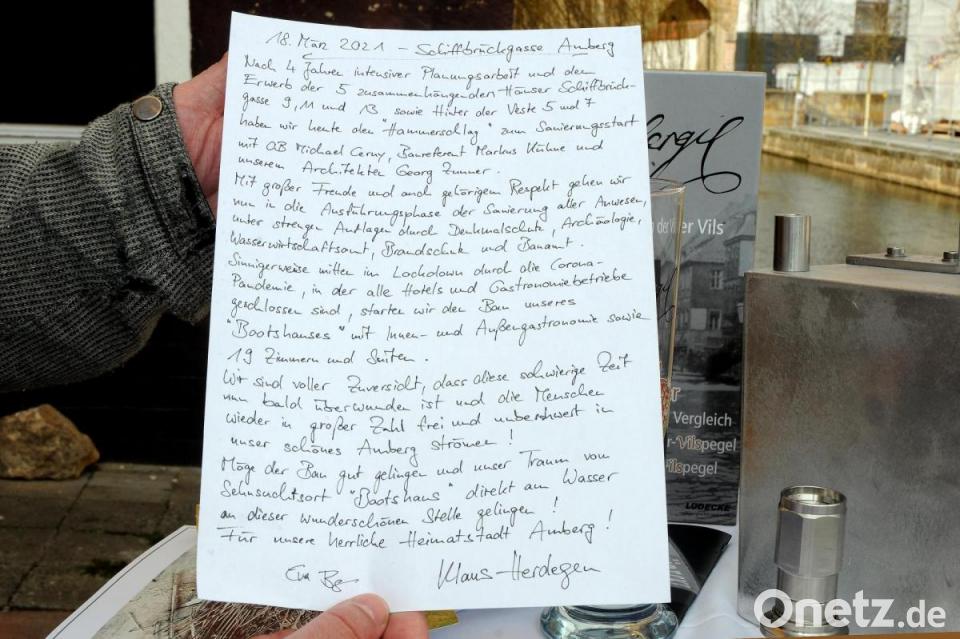 18. März 2021 – Schiffbrückgasse Amberg
Nach 4 Jahren intensiver Planungsarbeit und dem
Erwerb der 5 zusammenhängenden Häuser Schiffbrück-
gasse 9, 11 und 13 sowie Hinter der Veste 5 und 7
haben wir heute den "Hammerschlag" zum Sanierungsstart
mit OB Michael Cerny, Baureferent Markus Kühne und
unserem Architekten Georg Zunner.
Mit großer Freude und auch gehörigem Respekt gehen wir
nun in die Ausführungsphase der Sanierung aller Anwesen,
unter strengen Auflagen durch Denkmalschutz, Archäologie,
Wasserwirtschaftsamt, Brandschutz und Bauamt.
Sinnigerweise mitten im Lockdown durch die Corona-
Pandemie, in der alle Hotels und Gastronomiebetriebe
geschlossen sind, starten wir den Bau unseres
"Bootshauses" mit Innen- und Außengastronomie sowie
19 Zimmern und Suiten.
Wir sind voller Zuversicht, dass diese schwierige Zeit
nun bald überwunden ist und die Menschen
wieder in großer Zahl frei und unbeschwert in
unser schönes Amberg strömen!
Möge der Bau gut gelingen und unser Traum vom
Sehnsuchtsort "Bootshaus" direkt am Wasser
an dieser wunderschönen Stelle gelingen!
Für unsere herrliche Heimatstadt Amberg!
Klaus Herdegen
der Vils
Vergleich
r-Vilspegel
Vilspegel
LÜDECKE
Onetz.de